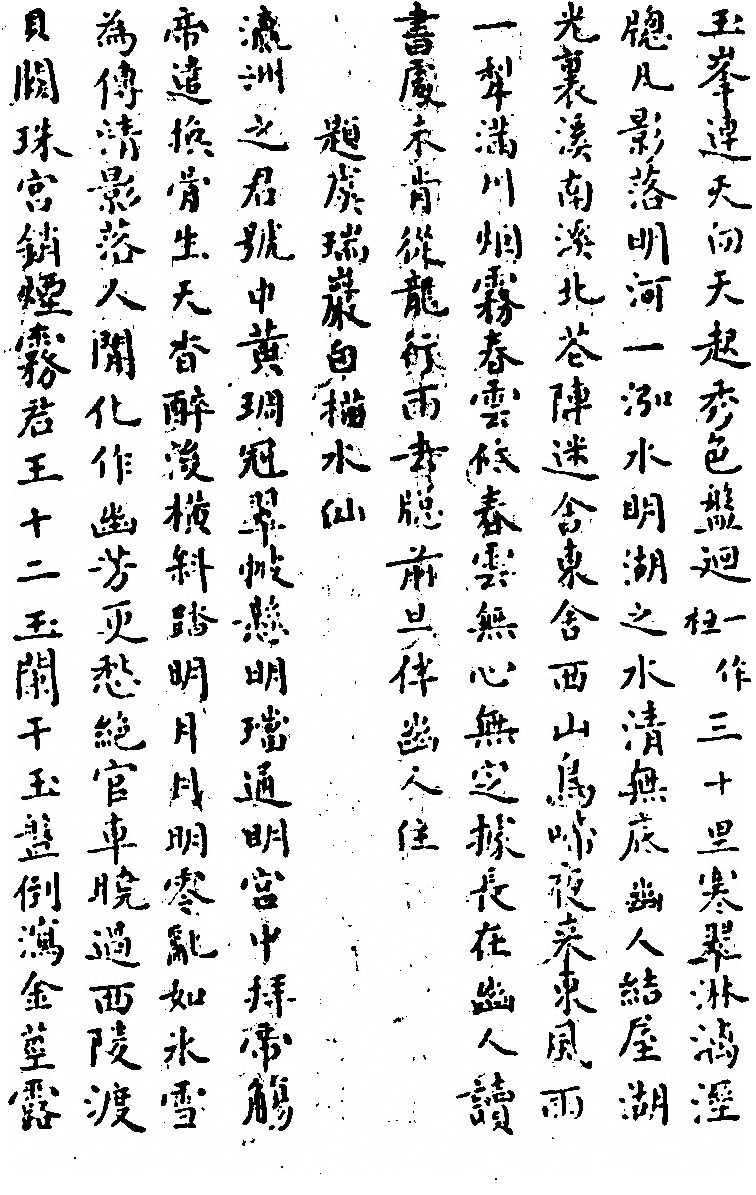 玉峯連天向天起秀色盤廻一作柱三十里寒翠淋漓溼
牕几影落明河一泓水明湖之水清無底幽人結屋湖
光裏溪南溪北花陣迷舍東舍西山鳥啼夜來東風雨
一犂滿川烟霧春雲低春雲無心無定據長在幽人讀
書處未肯從龍行雨去牕前且伴幽人住
題虞瑞巖白描水仙
瀛洲之君號中黄琱冠翠帔懸明璫通明宮中拜帝觴
帝遣換骨生天香醉後橫斜踏明月月明零亂如氷雪
為傳清影落人間化作幽芳更愁絶官車曉過西陵渡
貝闕珠宮銷煙霧君王十二玉闌干玉盤倒瀉金莖露